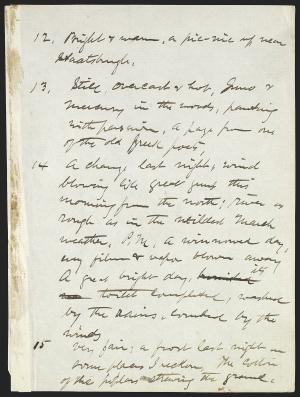 12. Bright & warm, a pic-nic up near
Staatsburgh.
13. Still, overcast & hot, Juno &
Mercury in the woods, panting
with passion, a page from one
of the old Greek poets,
14 A change last night, wind
blowing like great guns this
morning from the north; river as
rough as in the wildest March
weather, P.M. A winnowed day,
every film & vapor blown away,
A great bright day,
world completed, washed
by the rains, combed by the
winds
15 Very fair; a frost last night in
some places I reckon. The cotton
of the poplars strewing the ground.